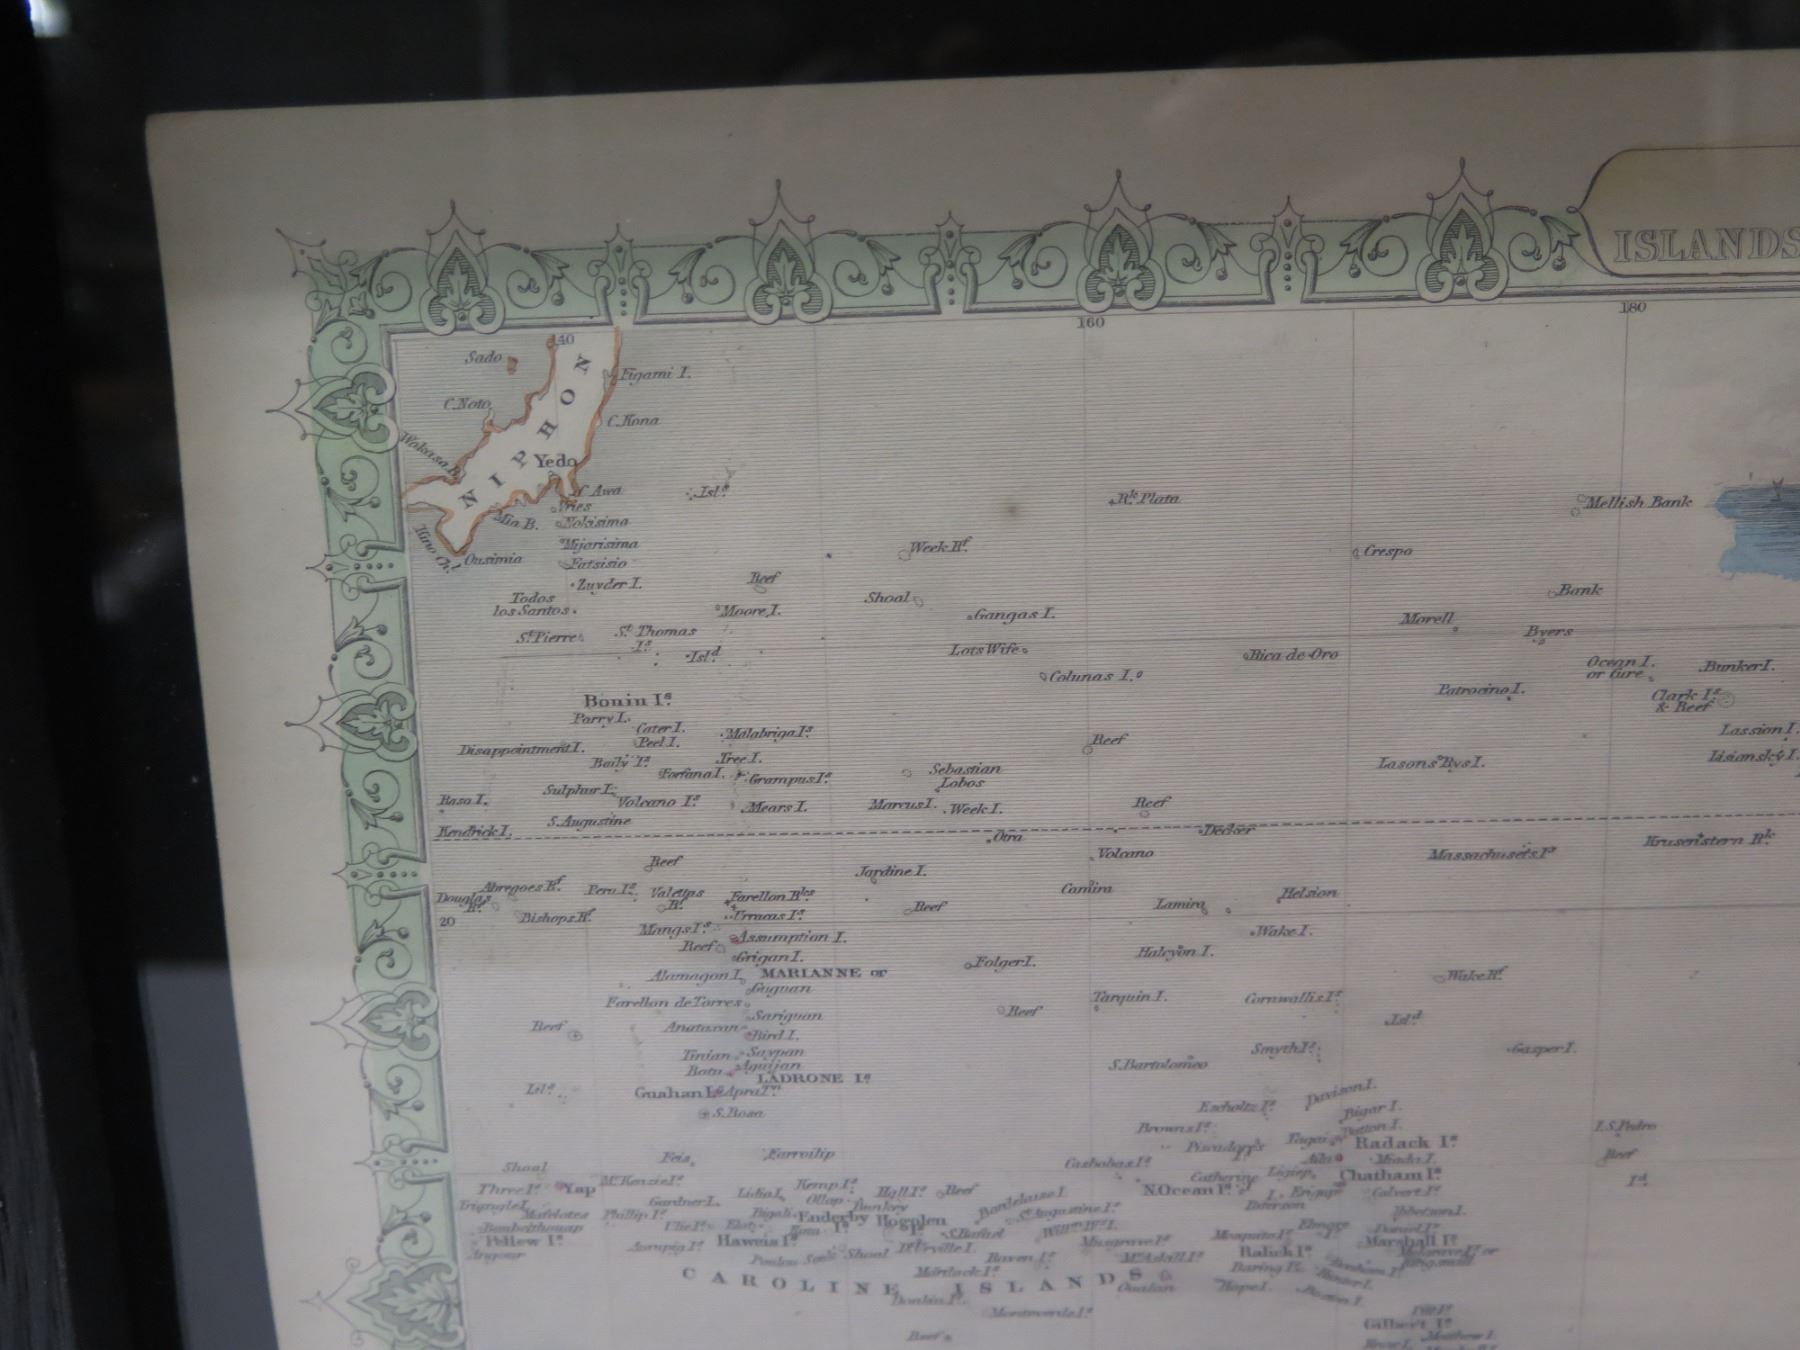 ISLANDS
160
180
40
Sado
Figami I.
C. Noto
C. Kona
NIPHON
Wakasa B.
Yedo
Awa
Isls
Rk Plata
Mellish Bank
Vries
Mia B.
Nokisima
Kino Chl
Ousimia
Mijarisima
Fatsisio
Week Rf
Crespo
Zuyder I.
Reef
Todos
los Santos
Moore I.
Shoal
Gangas I.
Bank
Morell
Byers
St Pierre
St Thomas
Is
Isld
Lots Wife
Rica de Oro
Colunas I.
Ocean I.
or Cure
Bunker I.
Patrocino I.
Clark Is
& Reef
Bonin Is
Parry I.
Cater I.
Peel I.
Malabriga Is
Lassion I.
Disappointment I.
Reef
Baily Is
Tree I.
Lasons Rys I.
Lisiansky I.
Forfana I.
Grampus Is
Sebastian
Lobos
Sulphur I.
Rasa I.
Volcano Is
Mears I.
Marcus I.
Week I.
Reef
S. Augustine
Kendrick I.
Otra
Decker
Krusenstern Rk
Volcano
Massachusets Is
Reef
Jardine I.
Abregoes Rf
Peru Is
Camira
Helsion
Douglas
Rf
Valetas
Rf
Farellon Rks
Lamira
20
Bishops Rf
Urracas Is
Reef
Mangs Is
Assumption I.
Wake I.
Reef
Grigan I.
Halcyon I.
Folger I.
Alamagon I.
MARIANNE or
Wake Rf
Guguan
Farellon de Torres
Tarquin I.
Cornwallis Is
Sariguan
Reef
Isld
Reef
Anataxan
Bird I.
Tinian
Saypan
Smyth Is
Gasper I.
Rota
Aguijan
S. Bartolomeo
LADRONE Is
Guahan I.
Apra
Isls
S. Rosa
Davison I.
Escholtz Is
Bigar I.
Browns Is
Button I.
I. S. Pedro
Radack Is
Feis
Farroilip
Reef
Shoal
Casbobas Is
Miada I.
Three Is
Yap
McKenzie Is
Catherine
Chatham Is
Lidia I.
Kemp Is
Hall Is
Reef
N. Ocean Is
Calvert Is
Gardner I.
Ollap
Bunkey
Bordelaise I.
Phillip Is
Bigali
Enderby
Hogolen
St Augustine Is
Ibbetson I.
Pellew Is
Haweis Is
S. Rafael
Musgrave Is
Marshall Is
Angour
Shoal
D'Urville I.
Raven Is
McAskill Is
Ralick Is
Baring Is
CAROLINE ISLANDS
Mordlock Is
Oualan
Hope I.
Hunter I.
Boston I.
Dunkin Is
Monteverde Is
Gilbert Is
Reef
Matthew I.